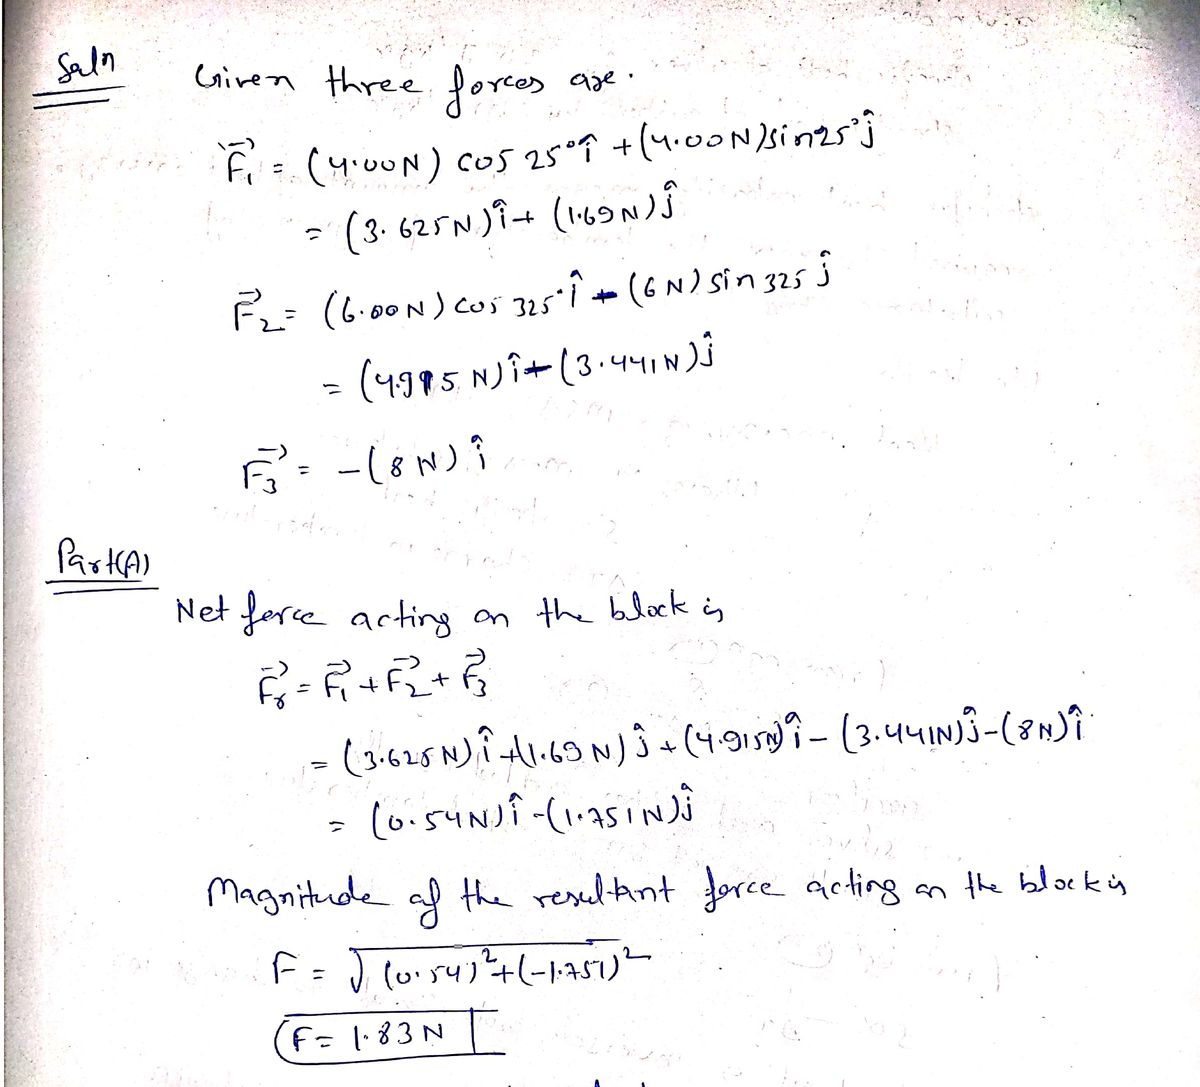 Soln
Given three forces are.
F⃗₁ = (4.00N) cos 25° î + (4.00N) sin25° ĵ
= (3.625N) î + (1.69N) ĵ
F⃗₂ = (6.00N) cos 325° î + (6N) sin 325 ĵ
= (4.915 N) î + (3.441N) ĵ
F⃗₃ = -(8N) î
Part(A)
Net force acting on the block is
F⃗r = F⃗₁ + F⃗₂ + F⃗₃
= (3.625N) î + (1.69N) ĵ + (4.915N) î - (3.441N) ĵ - (8N) î
= (0.54N) î - (1.751N) ĵ
Magnitude of the resultant force acting on the block is
F = √(0.54)² + (-1.751)²
F = 1.83N